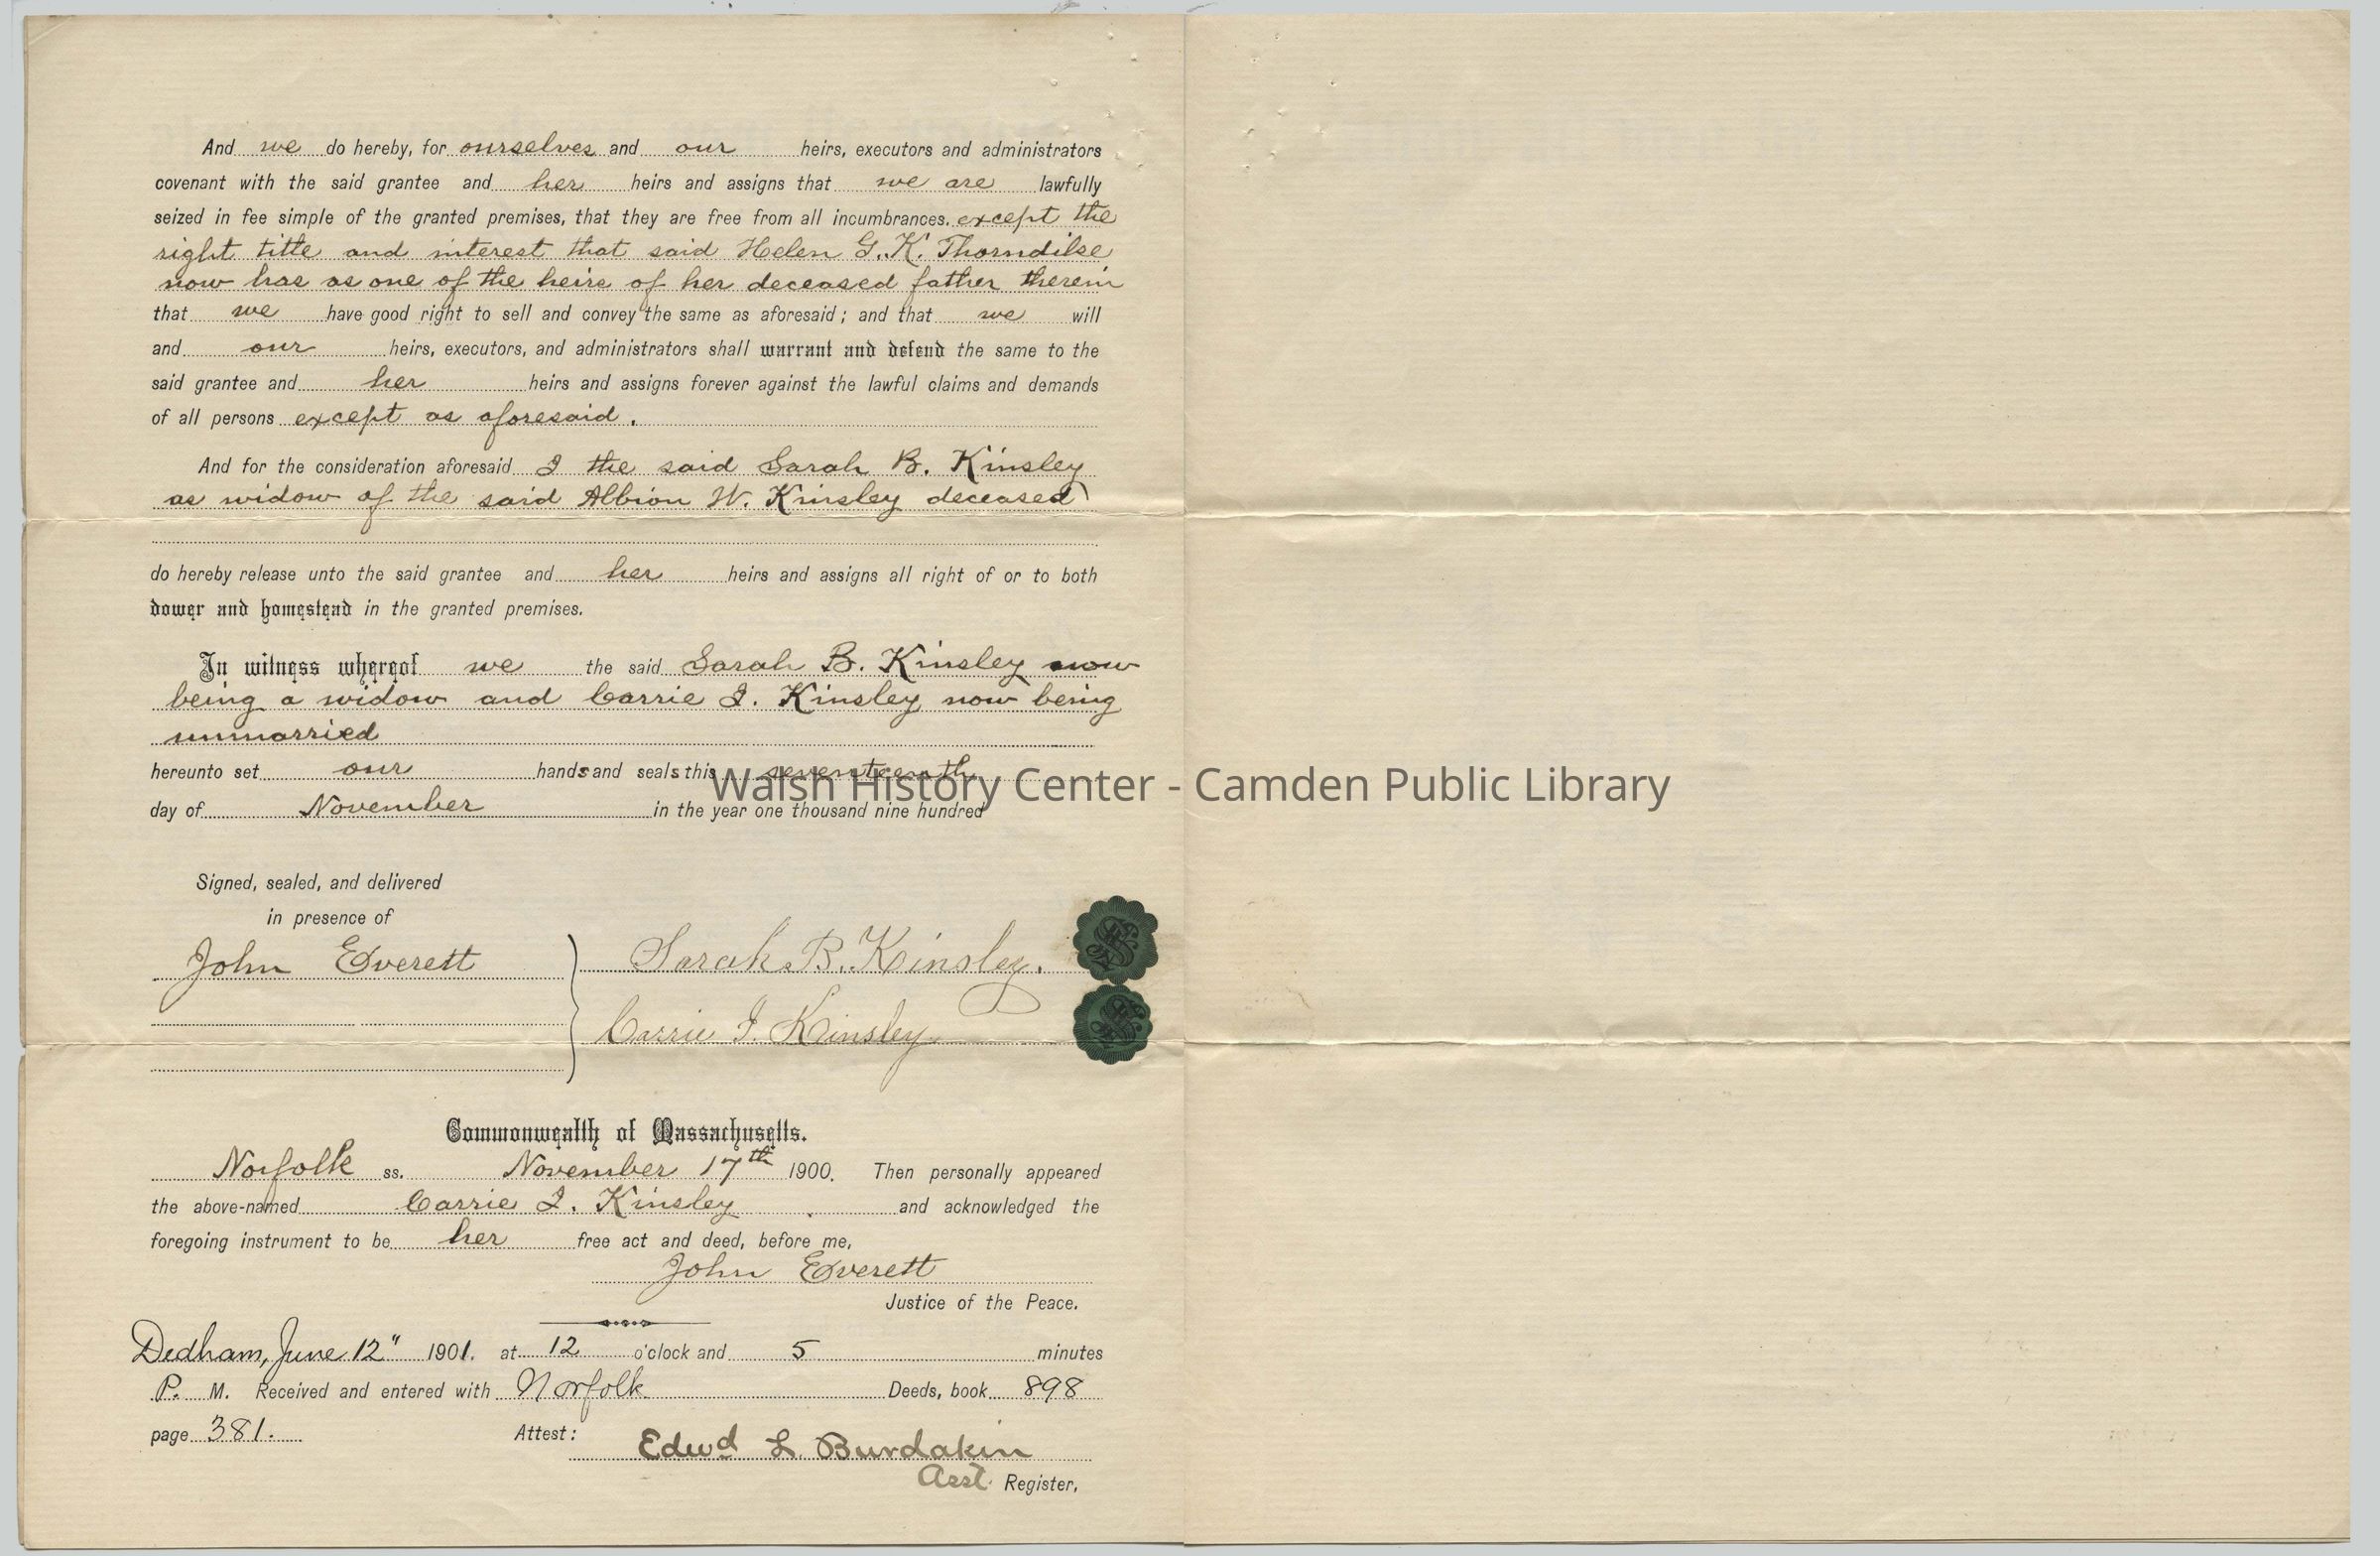 And we do hereby, for ourselves and our heirs, executors and administrators
covenant with the said grantee and her heirs and assigns that we are lawfully
seized in fee simple of the granted premises, that they are free from all incumbrances. except the
right title and interest that said Helen G. K. Thorndike
now has as one of the heirs of her deceased father therein
that we have good right to sell and convey the same as aforesaid; and that we will
and our heirs, executors, and administrators shall warrant and defend the same to the
said grantee and her heirs and assigns forever against the lawful claims and demands
of all persons except as aforesaid.
And for the consideration aforesaid I the said Sarah B. Kinsley
as widow of the said Albion W. Kinsley deceased
do hereby release unto the said grantee and her heirs and assigns all right of or to both
dower and homestead in the granted premises.
In witness whereof we the said Sarah B. Kinsley now
being a widow and Carrie I. Kinsley now being
unmarried
hereunto set our hands and seals this seventeenth
Walsh History Center - Camden Public Library
day of November in the year one thousand nine hundred
Signed, sealed, and delivered
in presence of
John Everett
Sarah B. Kinsley.
Carrie I. Kinsley
Commonwealth of Massachusetts.
Norfolk ss. November 17th 1900. Then personally appeared
the above-named Carrie I. Kinsley and acknowledged the
foregoing instrument to be her free act and deed, before me,
John Everett
Justice of the Peace.
Dedham, June 12" 1901. at 12 o'clock and 5 minutes
P. M. Received and entered with Norfolk Deeds, book 898
page 381. Attest: Edwd L. Burdakin
Asst. Register.